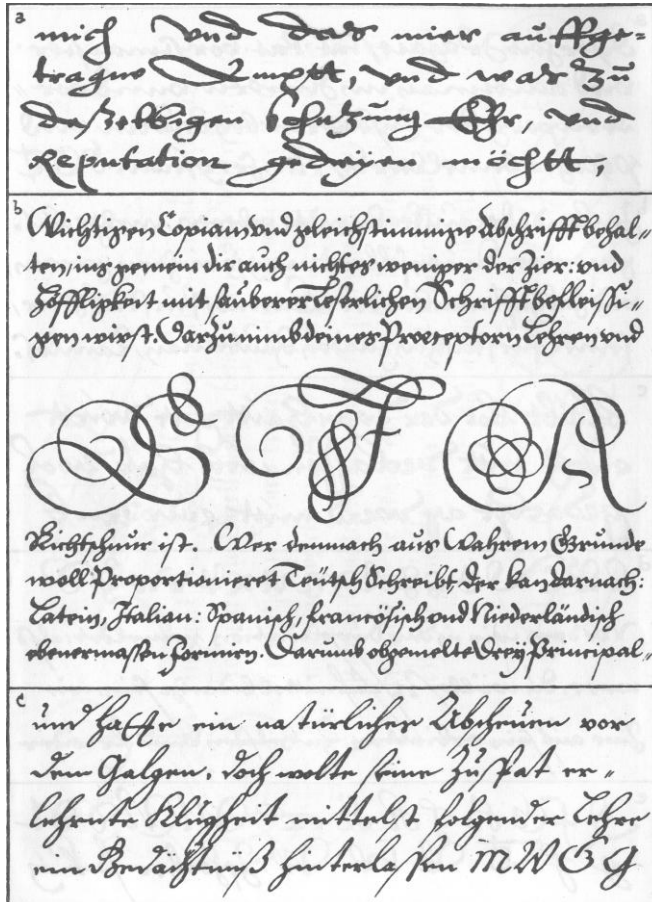 a
mich vnd das mier auffge-
tragne Amptt, vnd war zu
daßelbigen schatzung Ehr, vnd
Reputation gedeijen möchtt,
b
Wichtigen Copian vnd gleichstimmige Abschrifft behal-
ten, ins gemein dir auch nichtes weniger der Zier: vnd
Höffligkeit mit sauberer leserlichen Schrifft befleissi-
gen wirst. Darzu nimb deines Præceptorn Lehren vnd
Richtschnur ist. Wer demnach aus Wahrem Grunde
woll Proportioneret Teütsch Schreibt, der kan darnach:
Latein, Italian: Spanisch, Francöhisch vnd Niederländisch
ebenermassen formirn. Darumb obgemelte Drey Principal-
c
und hasse ein natürlicher Abscheuen vor
dem Galgen, doch wolte seine Zuspat er-
lehrnte Klugheit mittelst folgender Lehre
ein Gedächtniß hinterlassen M W G G